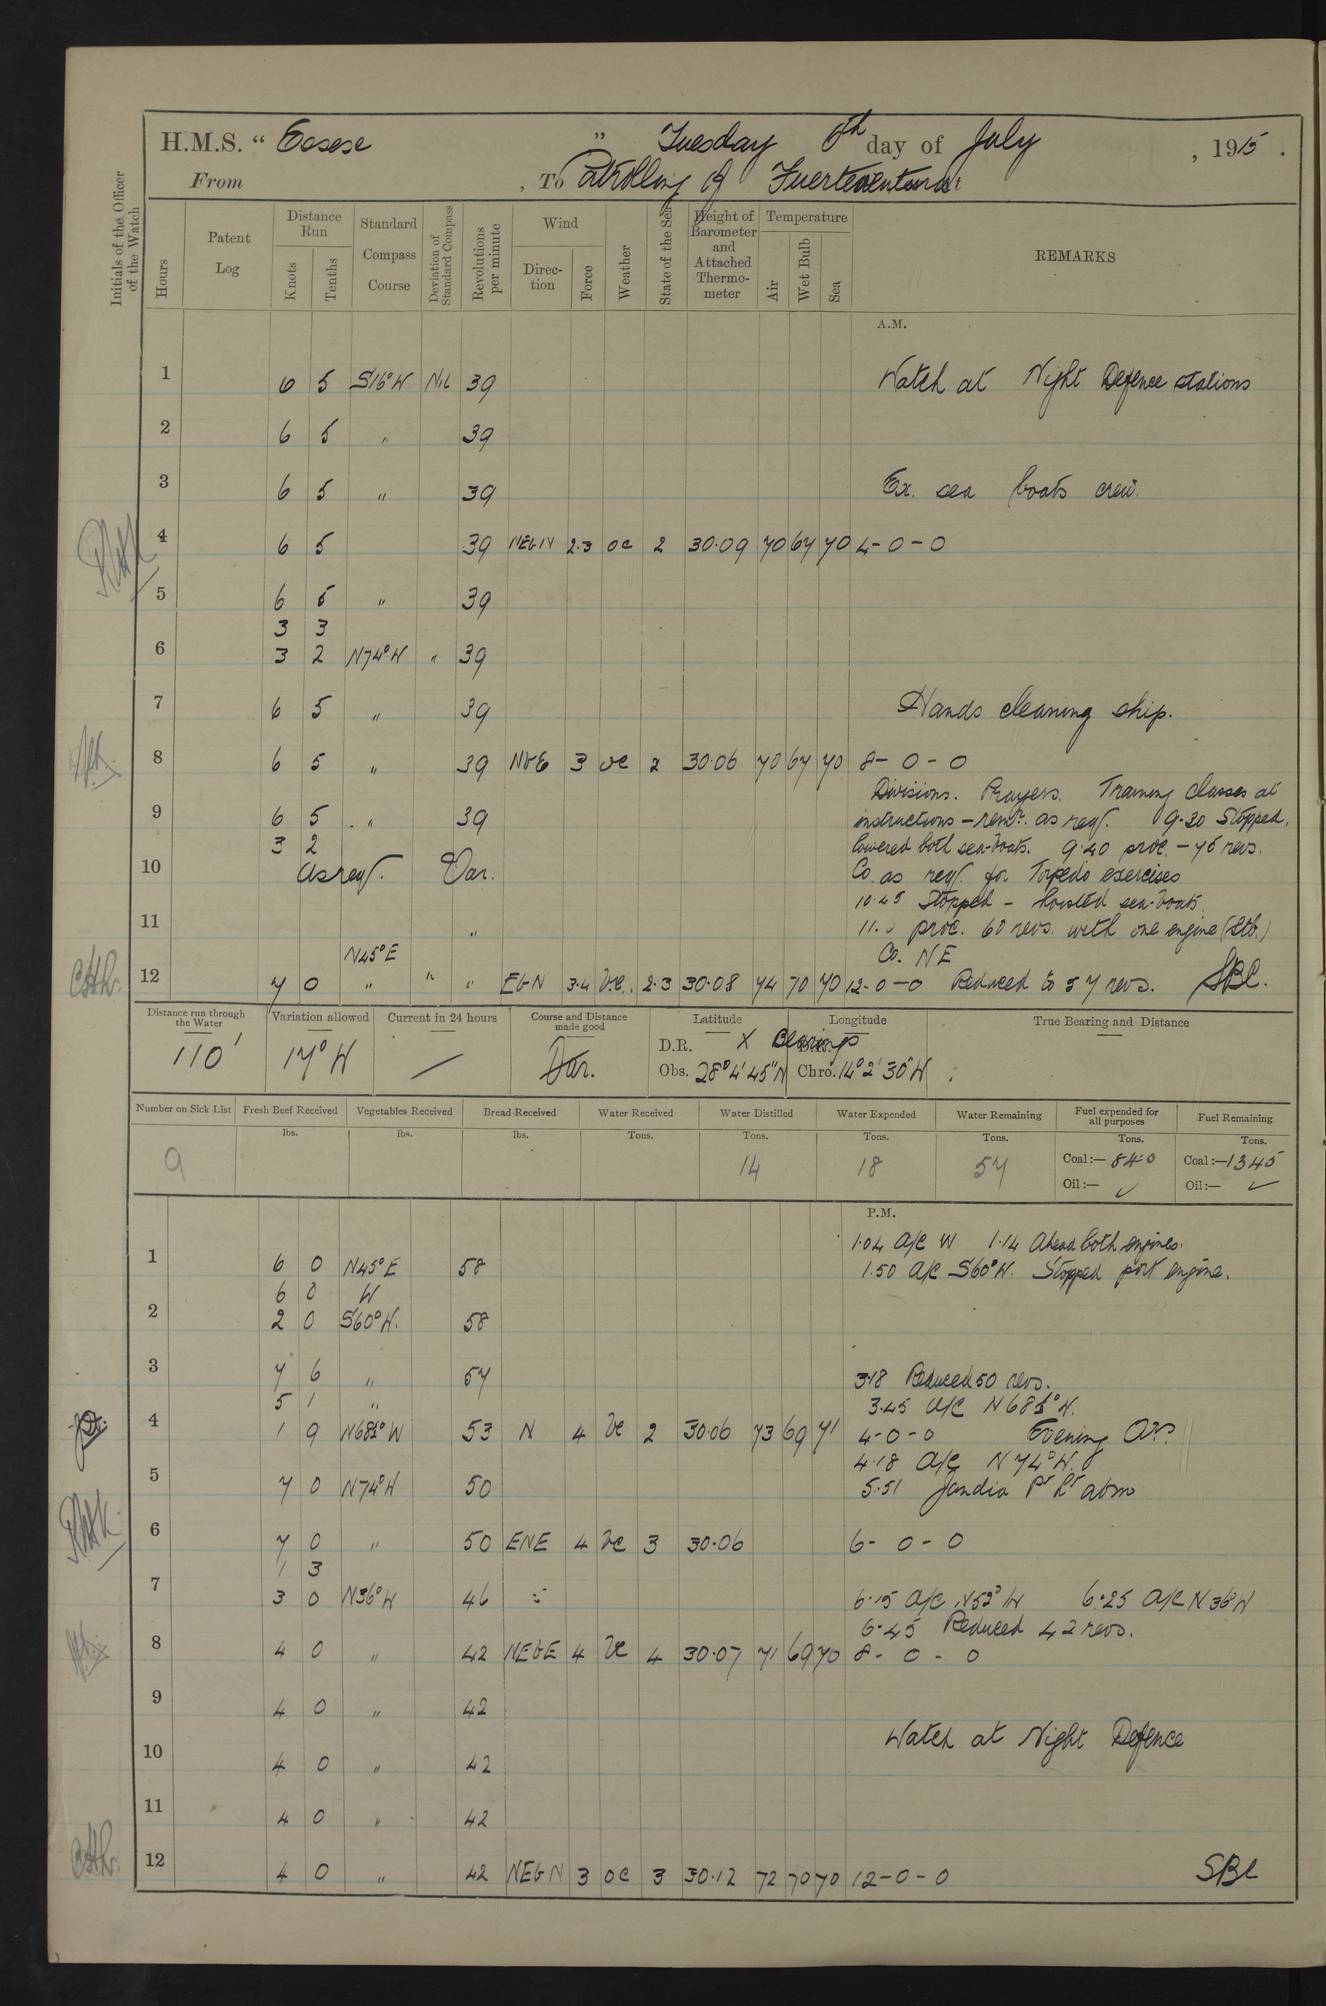 H.M.S. " Essex " Tuesday 6th day of July , 1915 .
From , To Patrolling off Fuerteventura
Initials of the Officer of the Watch
Hours
Patent Log
Distance Run
Knots
Tenths
Standard Compass Course
Deviation of Standard Compass
Revolutions per minute
Wind
Direc-tion
Force
Weather
State of the Sea
Height of Barometer and Attached Thermo-meter
Temperature
Air
Wet Bulb
Sea
REMARKS
A.M.
1 6 5 S16°W Nil 39 Watch at Night Defence stations
2 6 5 " 39
3 6 5 " 39 Ex. sea boats crew.
4 6 5 39 NEbN 2.3 oc 2 30.09 70 67 70 4-0-0
5 6 5 " 39
3 3
6 3 2 N74°W " 39
7 6 5 " 39 Hands cleaning ship.
8 6 5 " 39 NbE 3 oc 2 30.06 70 67 70 8-0-0
Divisions. Prayers. Training Classes at
9 6 5 " 39 instructions - remr. as req. 9.30 Stopped,
3 2 lowered both sea-boats. 9.40 proc. - 75 revs.
10 as req. Var. Co. as req. for Torpedo exercises
10.45 Stopped - hoisted sea-boats.
11 " 11.0 proc. 60 revs. with one engine (Stb.)
N45°E Co. NE
12 7 0 " " " EbN 3.4 bc. 2.3 30.08 74 70 70 12-0-0 Reduced to 57 revs. SBC.
Distance run through the Water
Variation allowed
Current in 24 hours
Course and Distance made good
Latitude
Longitude
True Bearing and Distance
110' 17°W Var. D.R. X Bearings
Obs. 28°4'45"N Chro. 14°2'30"W
Number on Sick List
Fresh Beef Received
Vegetables Received
Bread Received
Water Received
Water Distilled
Water Expended
Water Remaining
Fuel expended for all purposes
Fuel Remaining
lbs. lbs. lbs. Tons. Tons. Tons. Tons. Tons. Tons.
9 14 18 57 Coal:— 84.0 Coal:— 1345
Oil:— ✓ Oil:— ✓
P.M.
1.04 A/C W 1.14 Ahead both engines.
1 6 0 N45°E 58 1.50 A/C S60°W. Stopped port engine.
6 0 W
2 2 0 S60°W. 58
3 7 6 " 57 3.18 Reduced 50 revs.
5 1 " 3.45 A/C N68½°W.
4 1 9 N68½°W 53 N 4 bc 2 30.06 73 69 71 4-0-0 Evening Qrs.
4.18 A/C N74°W.
5 7 0 N74°W 50 5.51 Jandia Pt Lt abm
6 7 0 " 50 ENE 4 bc 3 30.06 6-0-0
1 3
7 3 0 N36°W 46 6.15 A/C N52°W 6.25 A/C N36°W
6.45 Reduced 42 revs.
8 4 0 " 42 NEbE 4 bc 4 30.07 71 69 70 8-0-0
9 4 0 " 42
Watch at Night Defence
10 4 0 " 42
11 4 0 " 42
12 4 0 " 42 NEbN 3 oc 3 30.12 72 70 70 12-0-0 SBC